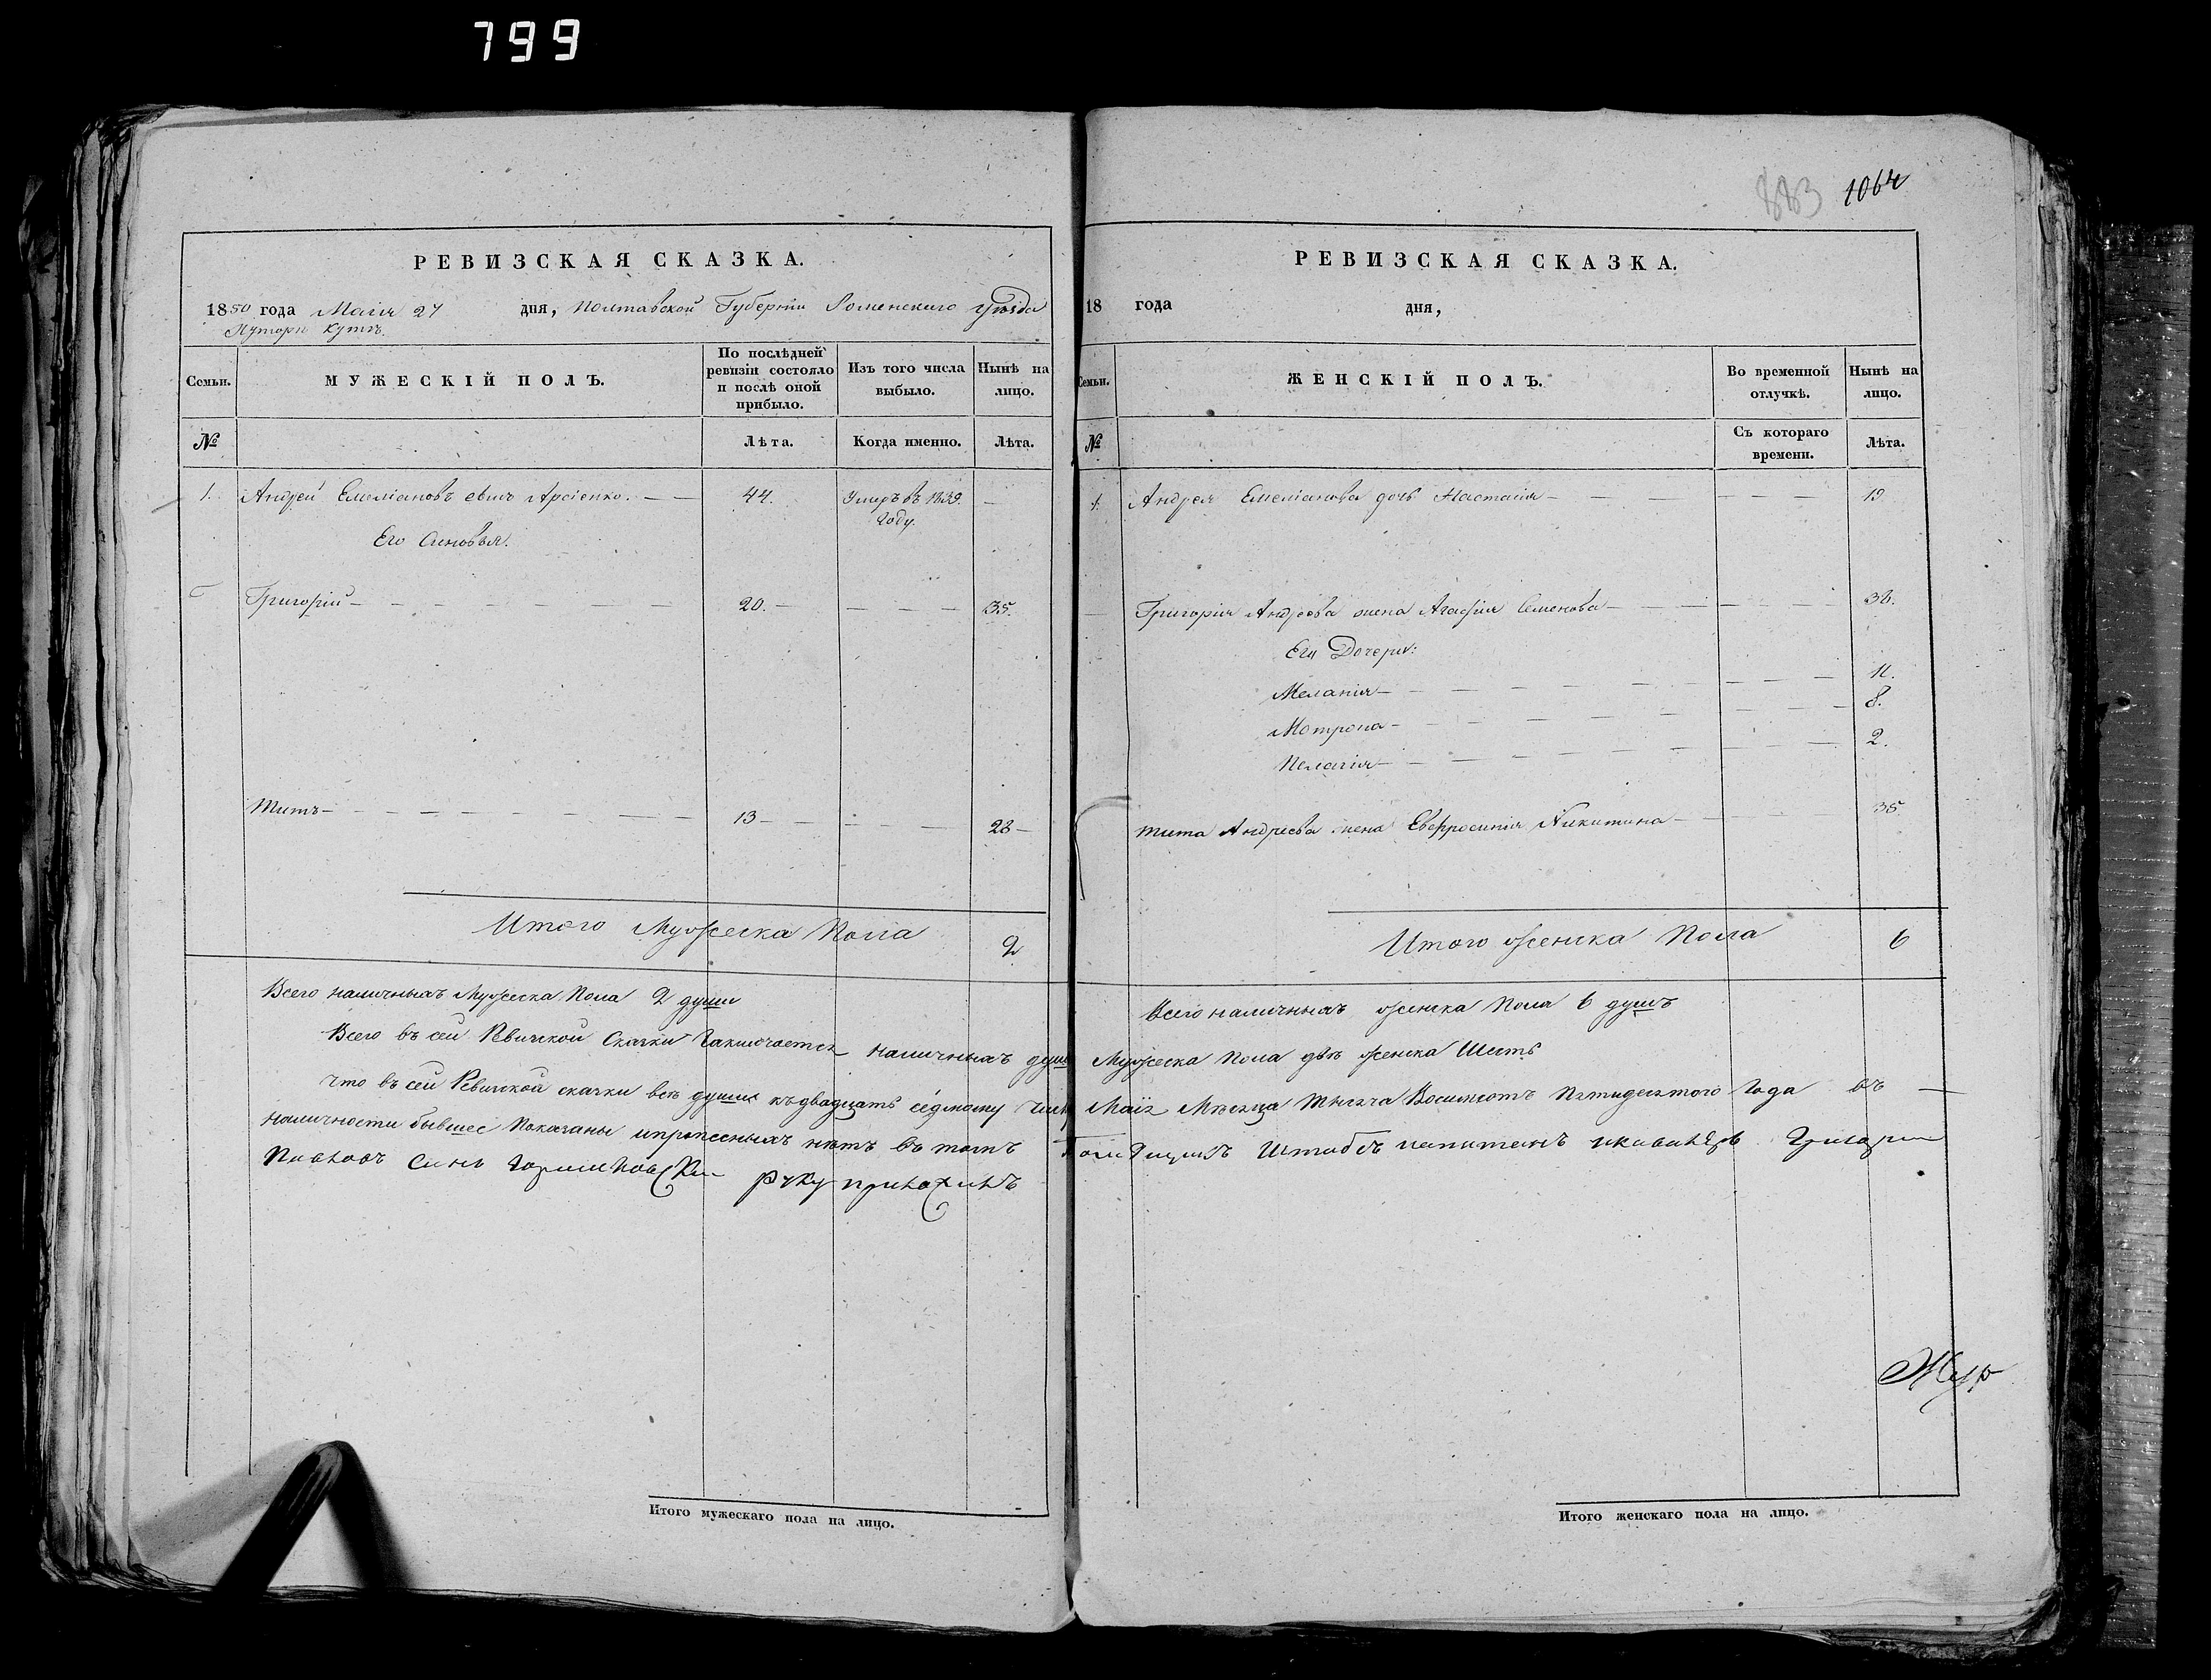 799
883 1064
РЕВИЗСКАЯ СКАЗКА.
1850 года Маія 27 дня, Полтавской Губерніи Роменскаго уѣзда
Хуторъ Кутъ.
Семьи. МУЖЕСКІЙ ПОЛЪ. По послѣдней ревизіи состояло и послѣ оной прибыло. Изъ того числа выбыло. Нынѣ на лицо.
№ Лѣта. Когда именно. Лѣта.
1. Андрей Емеліановъ сынъ Арсіенко. — — 44. Умеръ въ 1839. —
году.
Его Синовья.
Григорій — 20. — 35.
Титъ — 13 — 28 —
Итого Мужеска Пола 2
Всего наличныхъ Мужеска Пола 2 души
РЕВИЗСКАЯ СКАЗКА.
18 года дня,
Семьи. ЖЕНСКІЙ ПОЛЪ. Во временной отлучкѣ. Нынѣ на лицо.
№ Съ котораго времени. Лѣта.
1. Андрея Емеліанова дочь Настасія — 19
Григорія Андреева жена Агафія Семенова — 38.
Его Дочери:
Меланія — 11.
Мотрона — 8.
Пелагія — 2.
Тита Андреева жена Евфросинія Никитина — 35
Итого женска Пола 6
Всего наличныхъ женска Пола 6 душъ
Всего въ сей Ревизкой Сказки Заключается наличныхъ душъ Мужеска Пола двѣ женска Шесть
Что въ сей Ревизкой сказки всѣ души къ двадцать седмому числу Маія Мѣсяца Тысяча Восимсотъ Пятидесятого Года въ —
наличности бывшее Показаны и пропесныхъ нѣтъ въ томъ Помѣщикъ Штабсъ капитанъ икавалеръ Григори
Павловъ Синъ руку приложилъ
Итого мужескаго пола на лицо.
Итого женскаго пола на лицо.